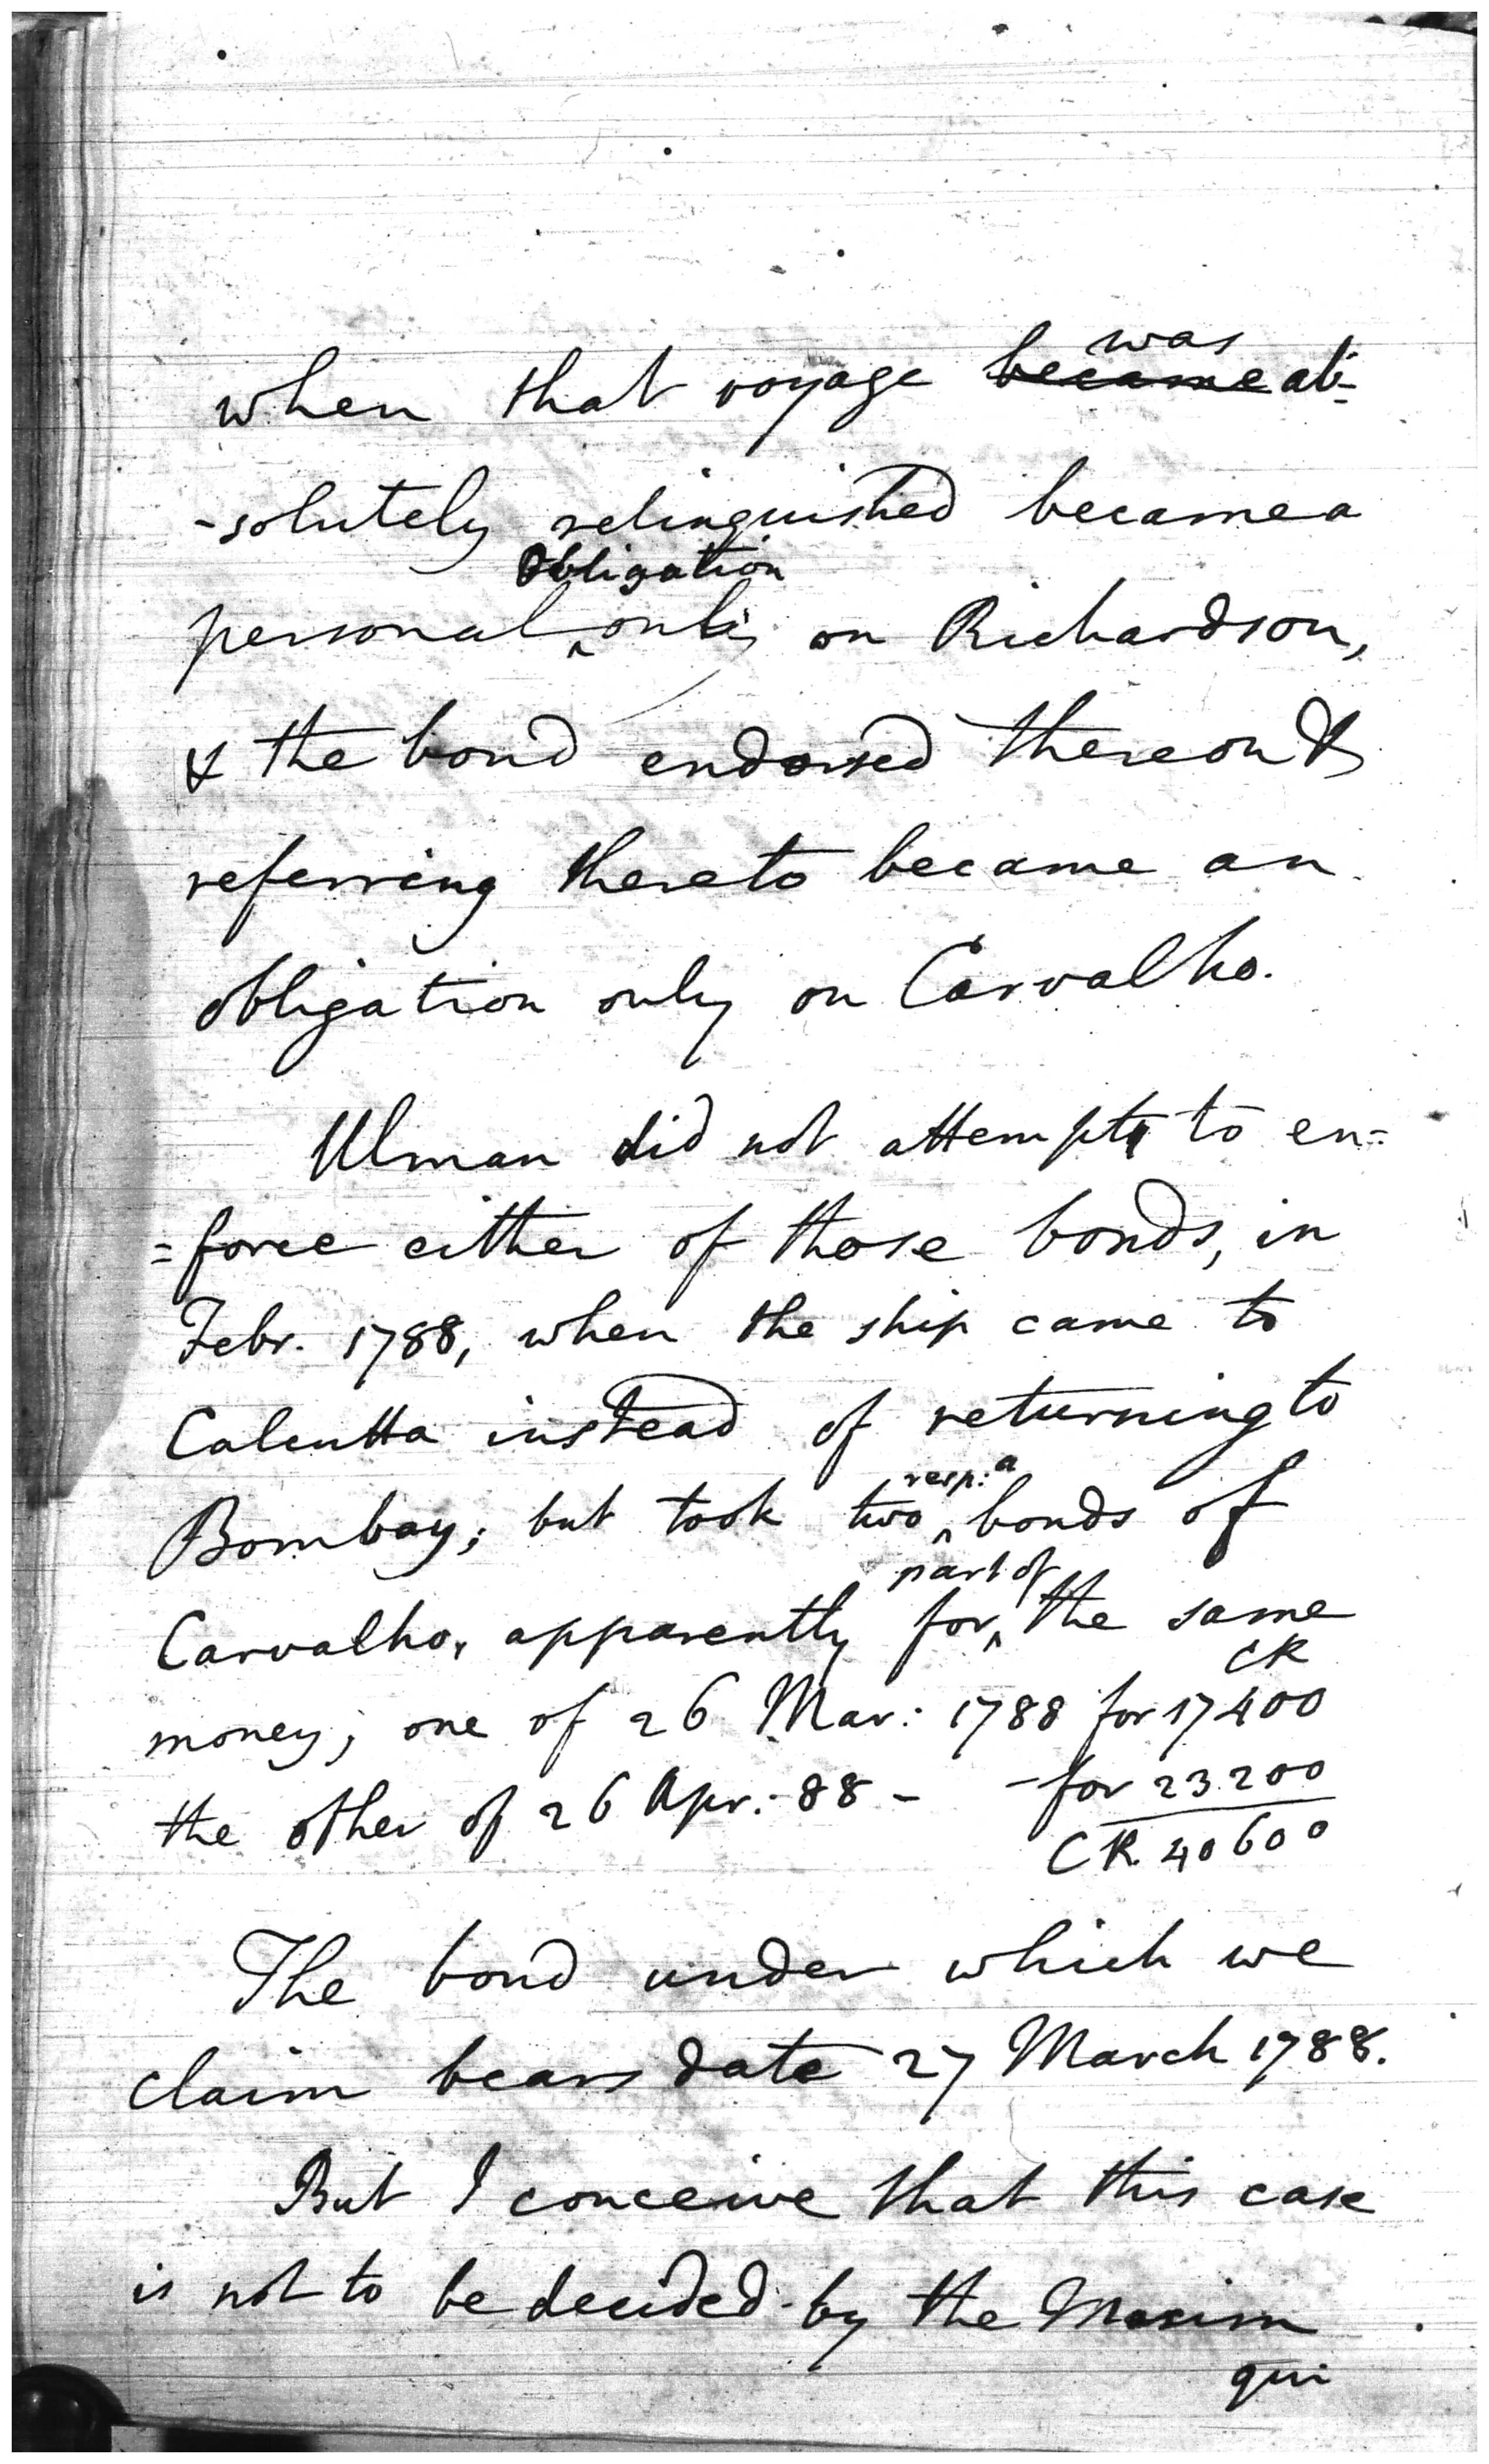 was
when that voyage became ab-
-solutely relinquished became a
Obligation
personal ^ only on Richardson,
& the bond endorsed thereon &
referring thereto became an
obligation only on Carvalho.
Ulman did not attempt to en=
=force either of those bonds, in
Febr. 1788, when the ship came to
Calcutta instead of returning to
resp:a
Bombay; but took two ^ bonds of
part of
Carvalho, apparently for ^ the same
CR
money; one of 26 Mar: 1788 for 17400
the other of 26 Apr:-88 - - for 23200
CR. 40600
The bond under which we
claim bears date 27 March 1788.
But I conceive that this case
is not to be decided by the Maxim
qui